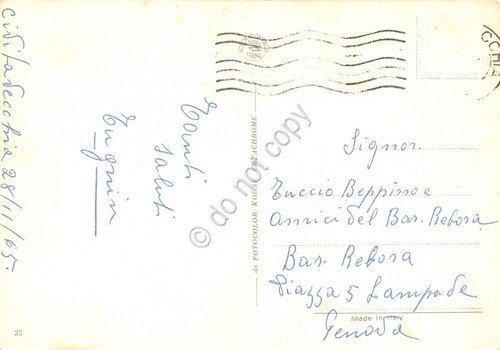 Civitavecchia 28/11/65.
Tanti
saluti
do not copy
da FOTOCOLOR KODAK EKTACHROME
Signor
Tuccio Beppino e
amici del Bar. Rebora
Bar. Rebora
Piazza 5 Lampade
Made in Italy
Genova
23